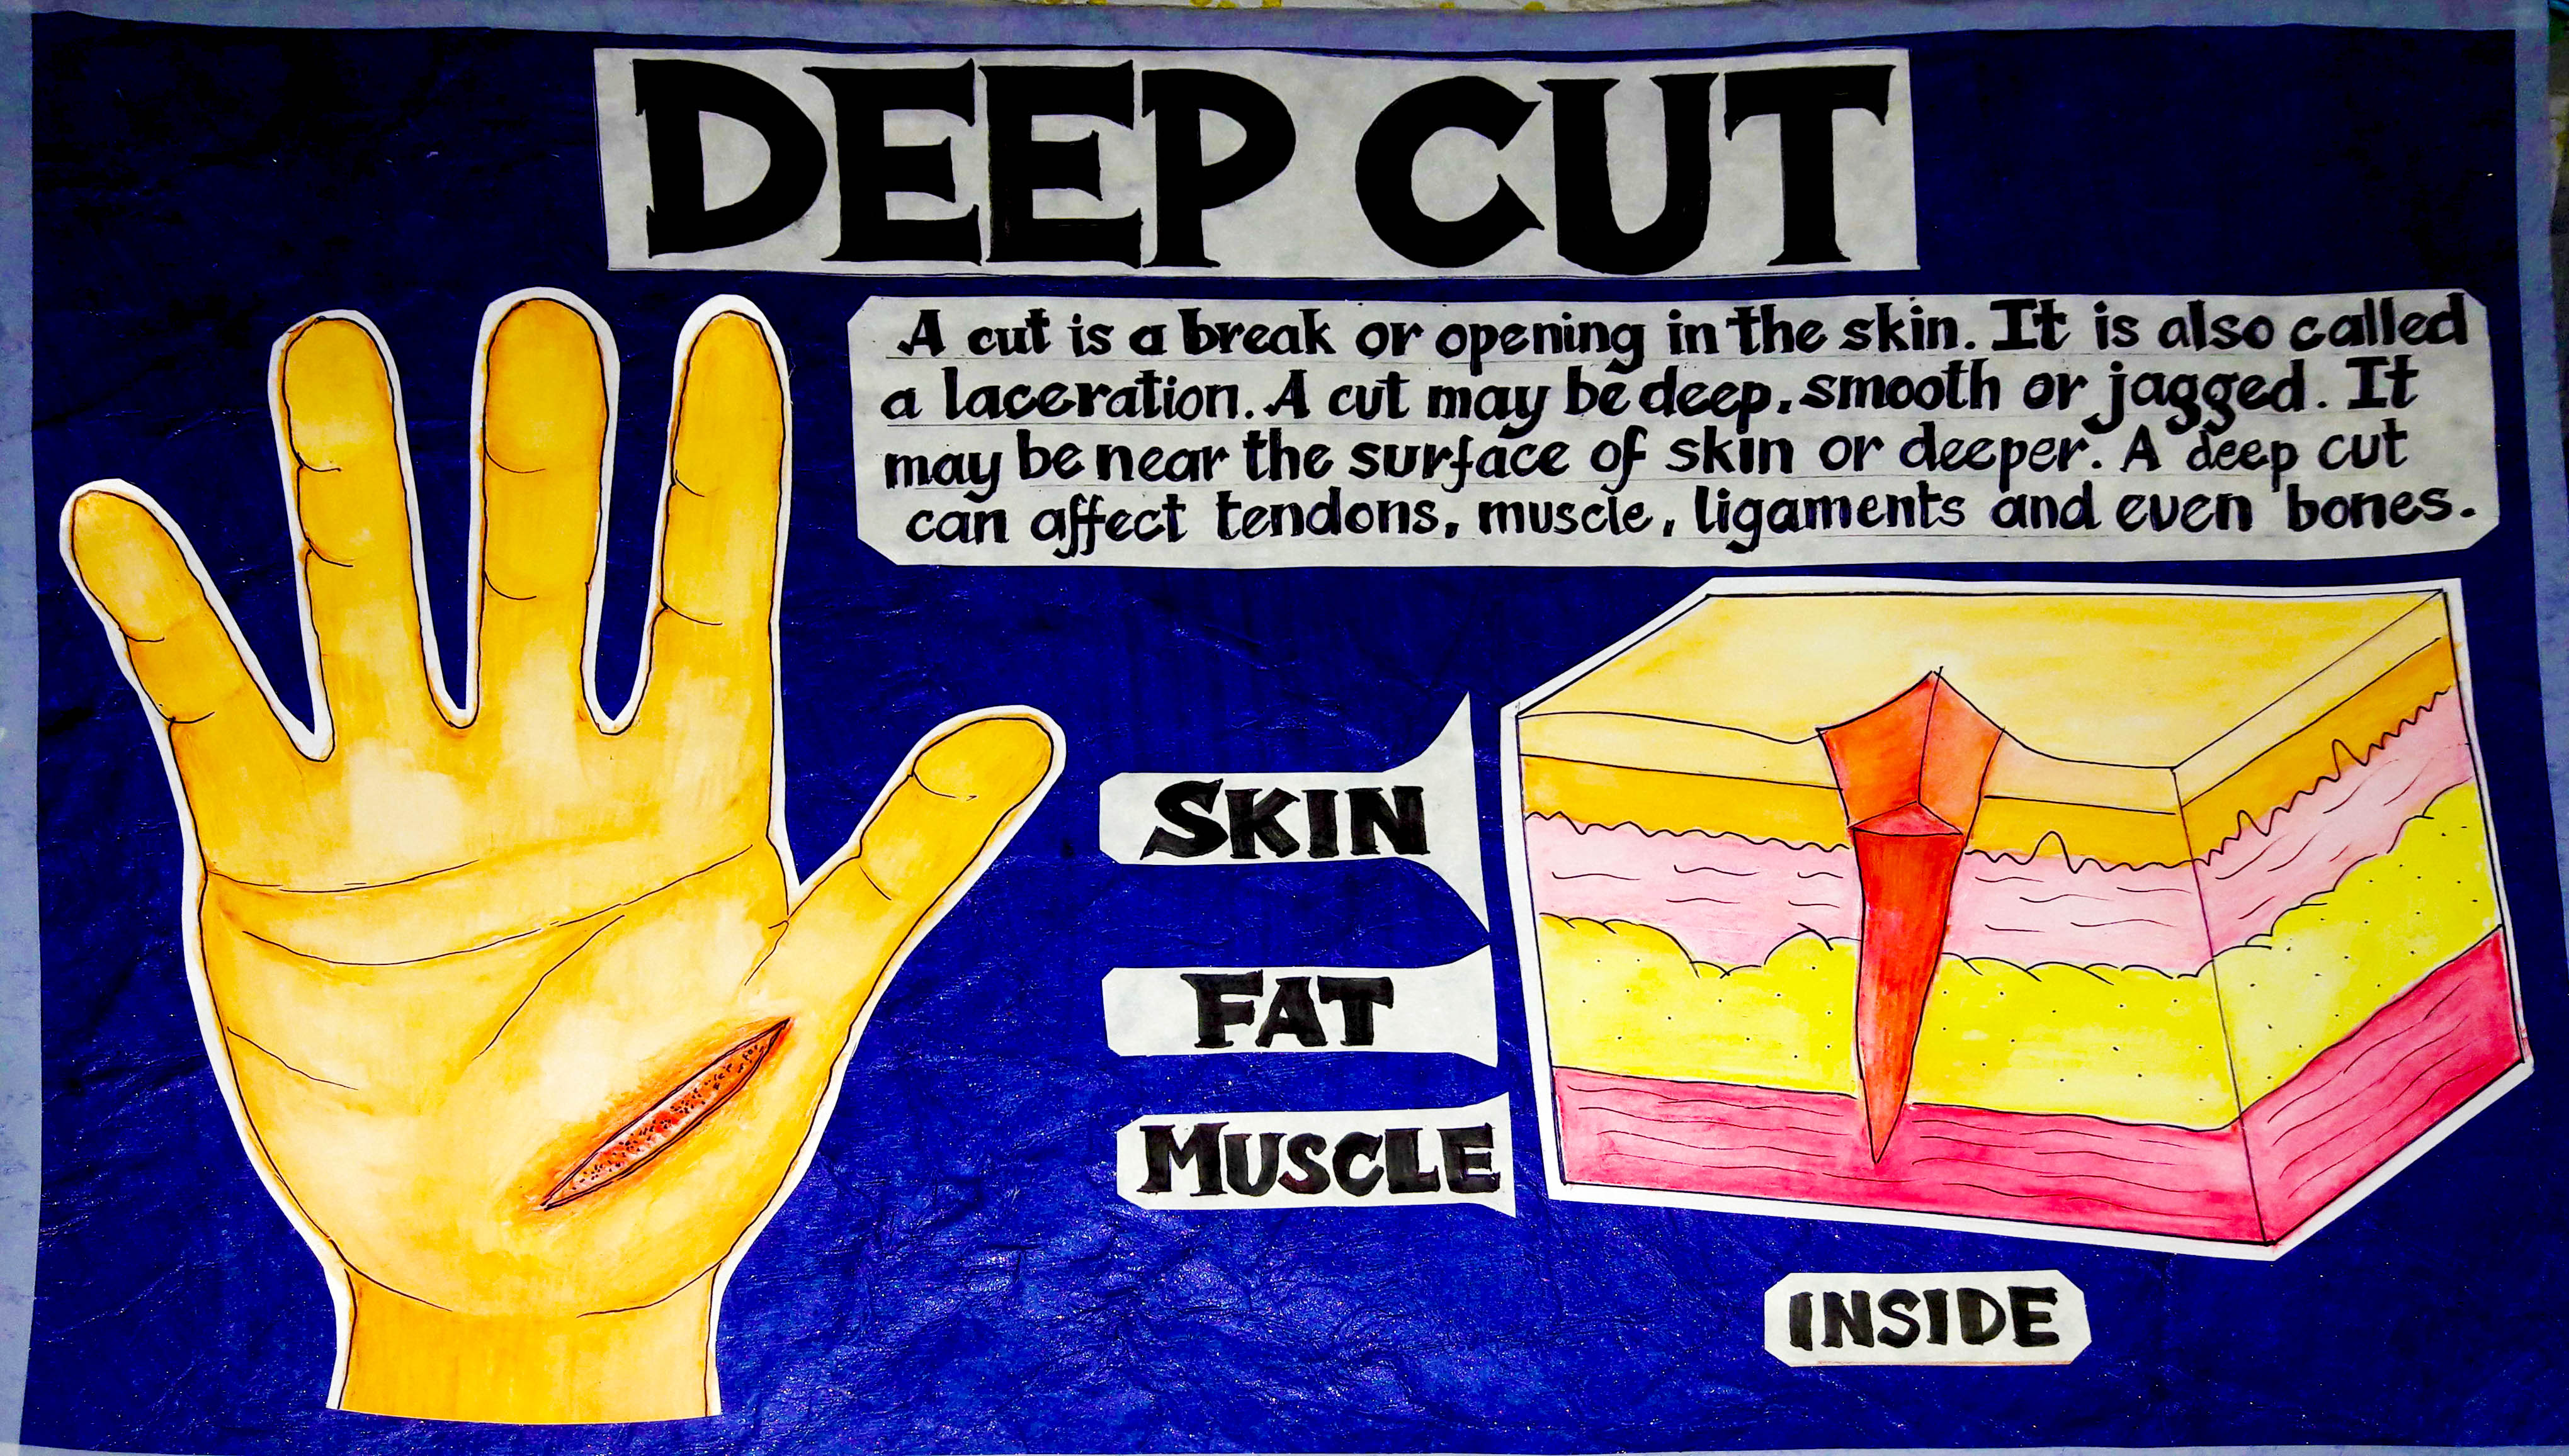 DEEP CUT
A cut is a break or opening in the skin. It is also called
a laceration. A cut may be deep, smooth or jagged. It
may be near the surface of skin or deeper. A deep cut
can affect tendons, muscle, ligaments and even bones.
SKIN
FAT
MUSCLE
INSIDE